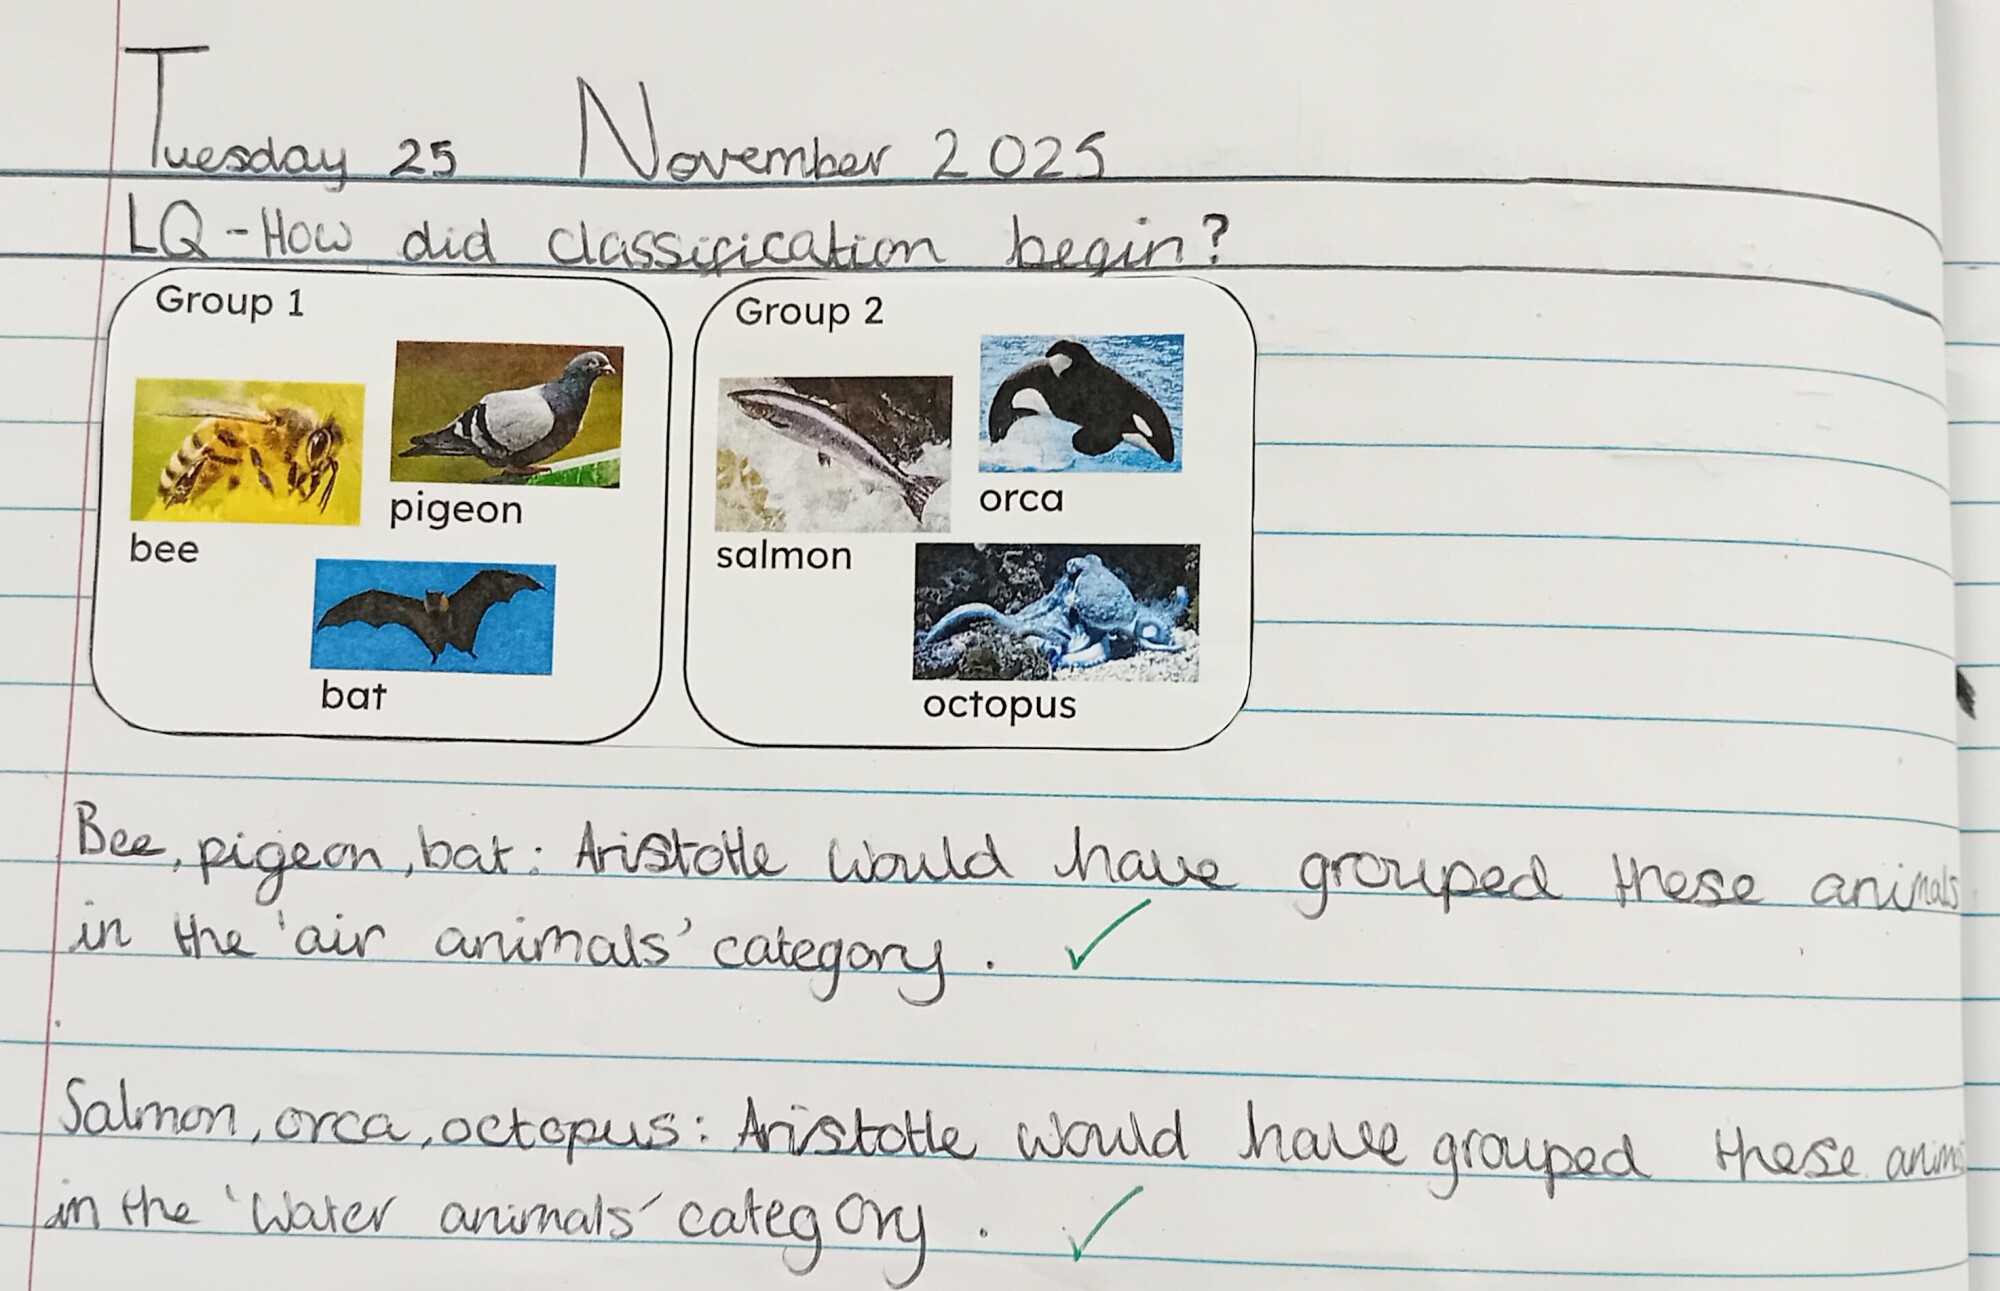 Tuesday 25 November 2025
LQ-How did classification begin?
Group 1
bee
pigeon
bat
Group 2
salmon
orca
octopus
Bee, pigeon, bat: Aristotle would have grouped these animals
in the 'air animals' category.
Salmon, orca, octopus: Aristotle would have grouped these anim
in the 'Water animals' category.